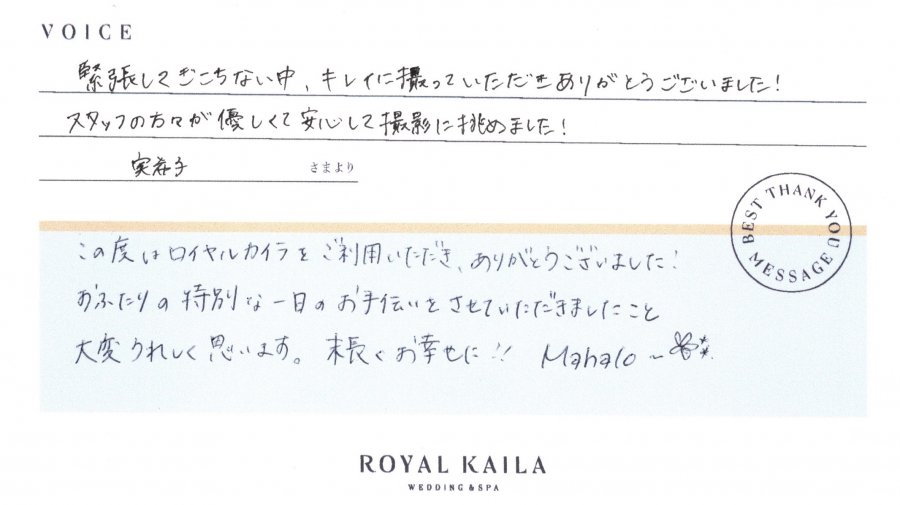 VOICE
緊張してぎこちない中、キレイに撮っていただきありがとうございました!
スタッフの方々が優しくて安心して撮影に挑めました!
実希子 さまより
BEST THANK YOU MESSAGE
この度はロイヤルカイラをご利用いただき、ありがとうございました!
おふたりの特別な一日のお手伝いをさせていただきましたこと
大変うれしく思います。末長くお幸せに!! Mahalo~
ROYAL KAILA
WEDDING & SPA